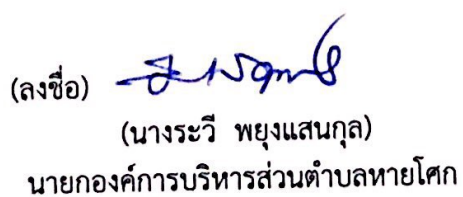 (ลงชื่อ)
(นางระวี พยุงแสนกุล)
นายกองค์การบริหารส่วนตำบลหายโศก